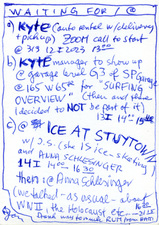 WAITING FOR / @
a) KYTE (auto rental w/delivery
+ pickup) ZOOM call to start
@ 313 12 I 2023 13
b) KYTE manager to show up
@ garage level G3 of SP Garage
@ 165 W 65 for "SURFING
OVERVIEW" (then and
decided to NOT be part of it)
13 I
c) @ ICE AT STUYTOWN
w/ J.S. (she IS ice-skating)
and ANNA SCHLESINGER
14 I 16 30
then: @ Anna Schlesinger
(we talked - as usual - about
WW II, the Holocaust etc
RUM from